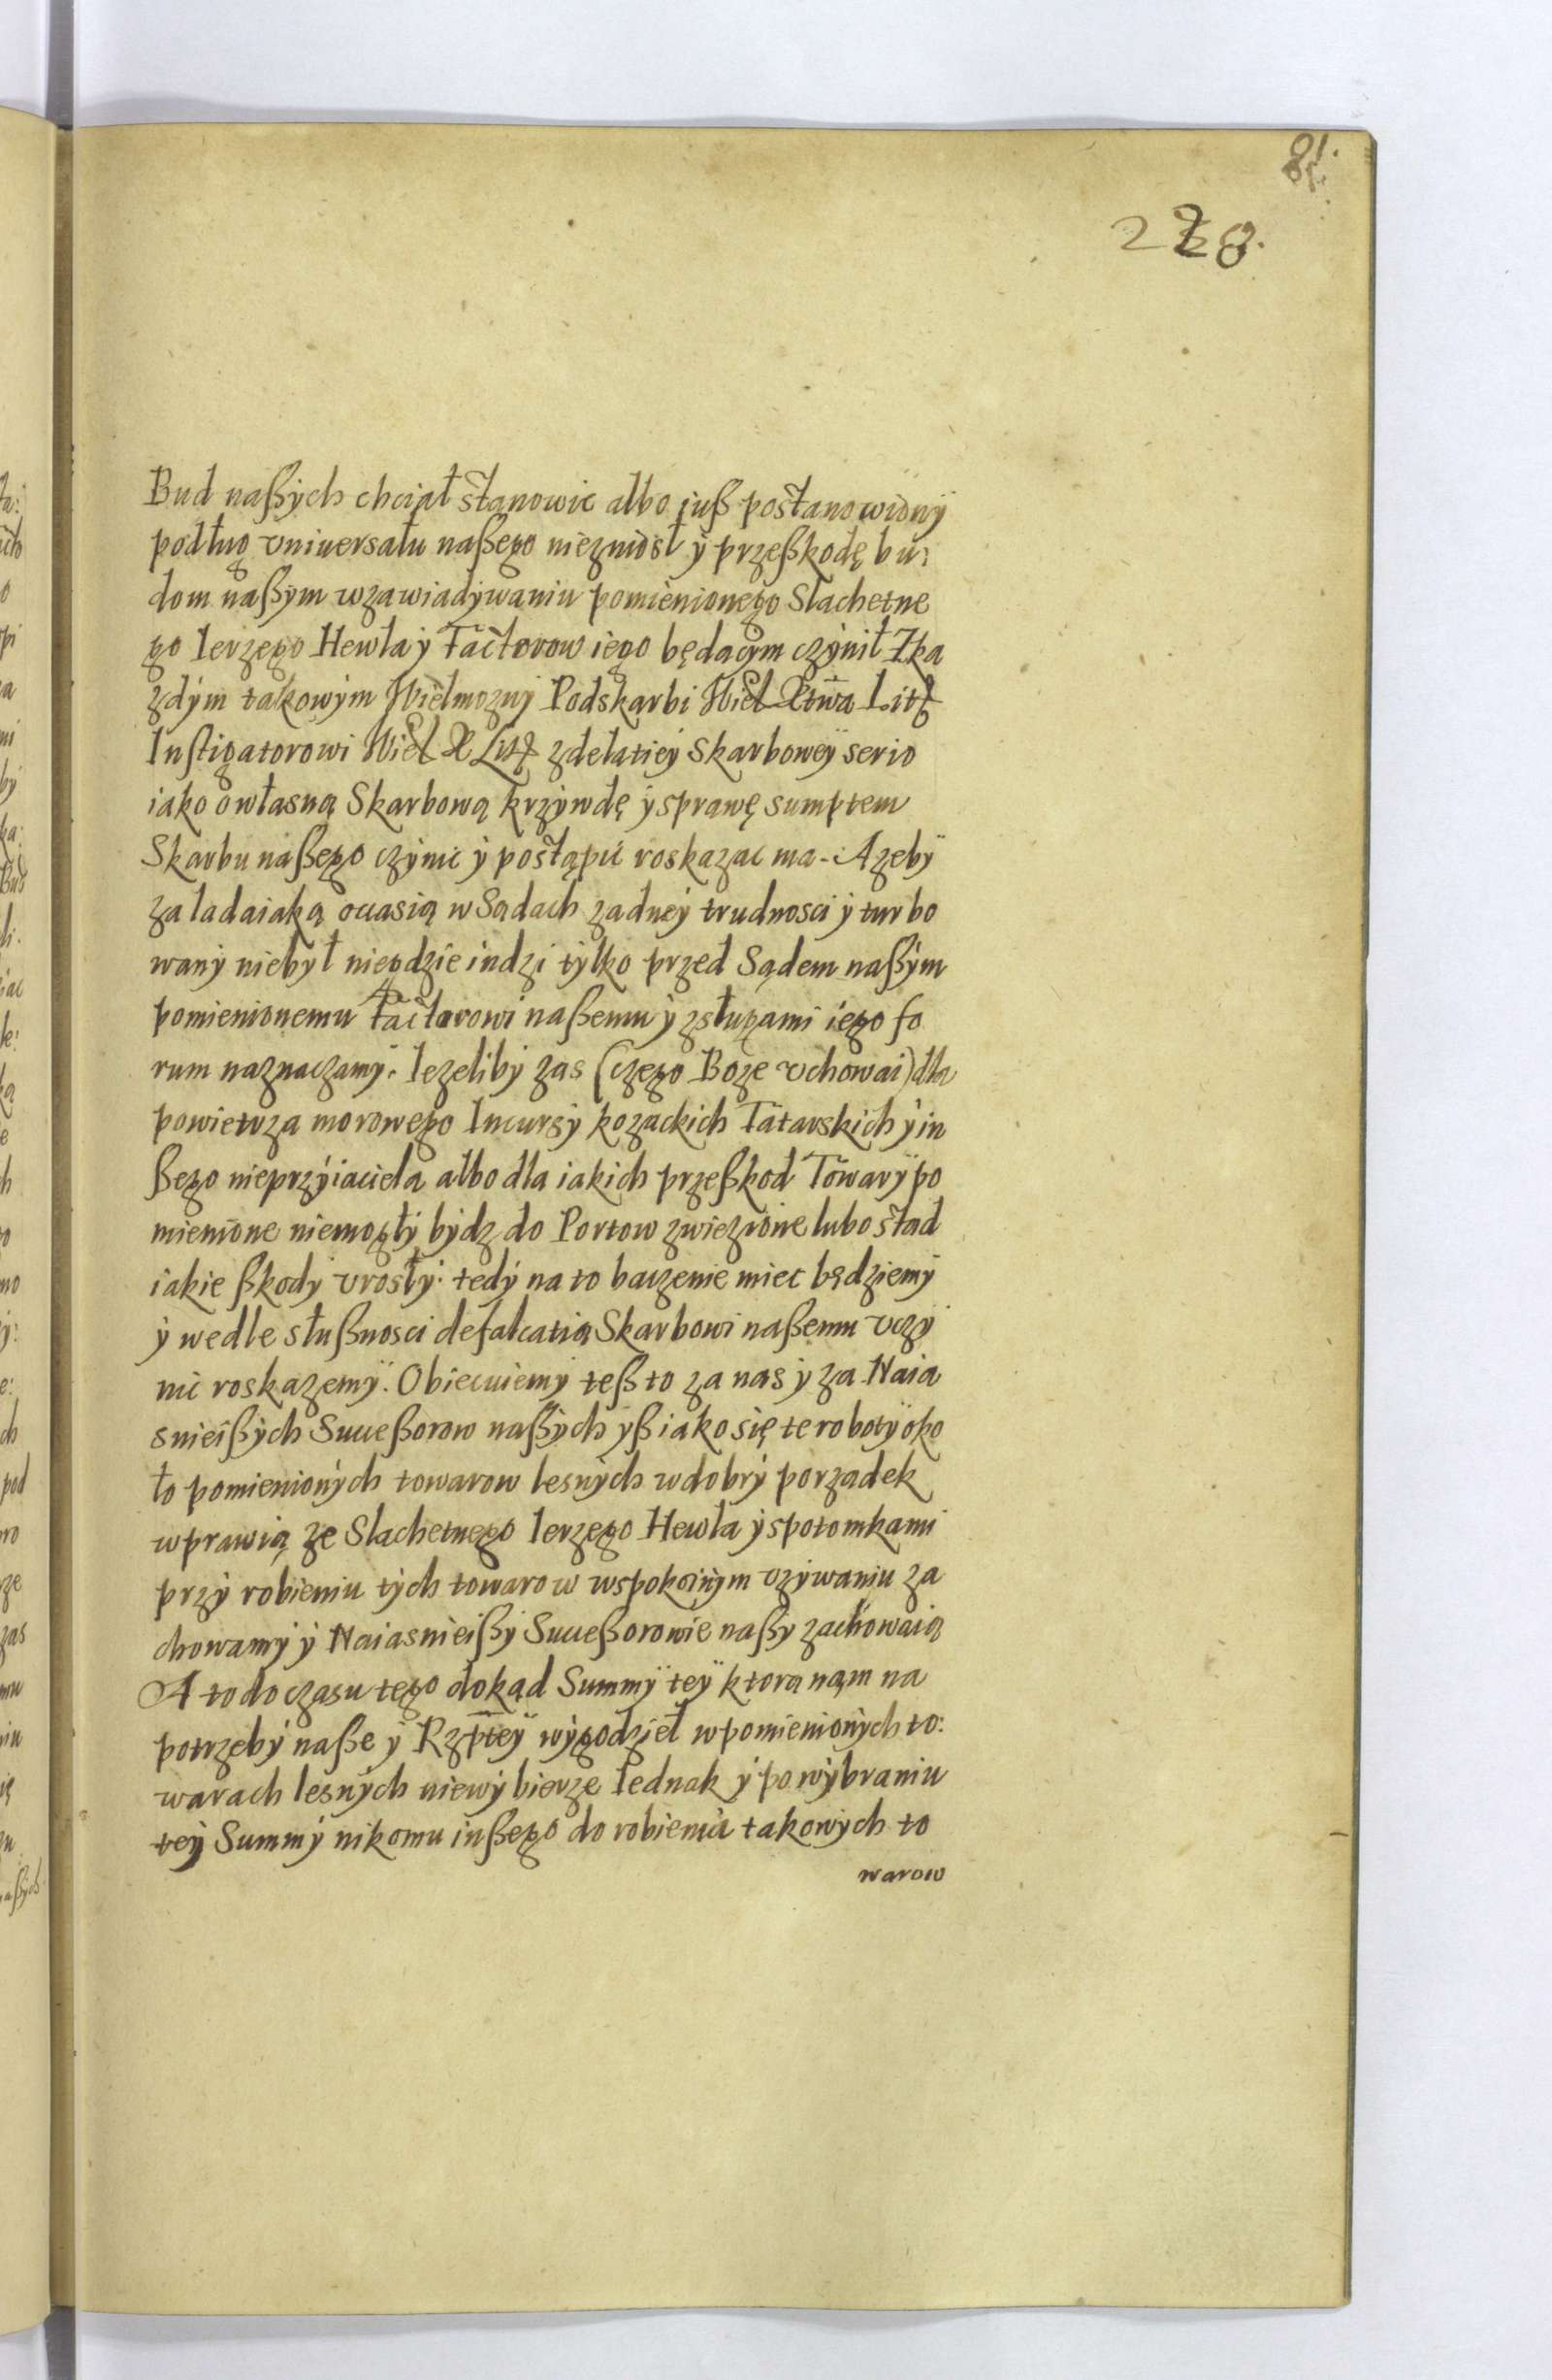 81.
228.
Bud naßÿch chciał stanowic albo juß postanowionÿ
podług vniuersału naßego niezniosł ÿ przeßkodę bu:
dom naßÿm wzawiadÿwaniu pomienionego Slachetne
go Ierzego Hewla ÿ Factorow iego będącÿm czÿnił Zka
zdÿm takowÿm Wielmoznÿ Podskarbi Wiel Xtwa Litt
Instigatorowi Wiel X Litt zdelatieÿ Skarboweÿ serio
iako owłasną Skarbową krzÿwdę ÿ sprawę sumptem
Skarbu naßego czÿnic ÿ postąpić roskazac ma. Azebÿ
za ladaiaką occasią w Sądach zadneÿ trudnosci ÿ turbo
wanÿ niebÿł niegdzie indzi tÿlko przed Sądem naßÿm
pomienionemu Factorowi naßemu ÿ zsługami iego fo
rum naznaczamÿ. Iezelibÿ zas (czego Boze vchowai) dla
powietrza morowego Incursÿ kozackich Tatarskich ÿ in
ßego nieprzÿiaciela albo dla iakich przeßkod Towarÿ po
mienione niemogłÿ bÿdz do Portow zwiezione lubo stąd
iakie ßkodÿ vrosłÿ. tedÿ na to baczenie miec będziemÿ
ÿ wedle słußnosci defalcatią Skarbowi naßemu vczÿ
nic roskazemÿ. Obiecuiemÿ teß to za nas ÿ za Naia
snieißÿch Succeßorow naßÿch ÿß iako się te robotÿ oko
ło pomienionÿch towarow lesnÿch wdobrÿ porzadek
wprawią ze Slachetnego Ierzego Hewla ÿ spotomkami
przÿ robieniu tÿch towarow wspokoinÿm vzÿwaniu za
chowamÿ ÿ Naiasnieißÿ Succeßorowie naßÿ zachowaią
A to do czasu tego dokąd Summÿ teÿ ktorą nąm na
potrzebÿ naße ÿ Rzpteÿ wÿgodzieł wpomienionÿch to:
warach lesnÿch niewÿbierze Iednak ÿ po wÿbraniu
teÿ Summÿ nikomu inßego do robienia takowÿch to
warow